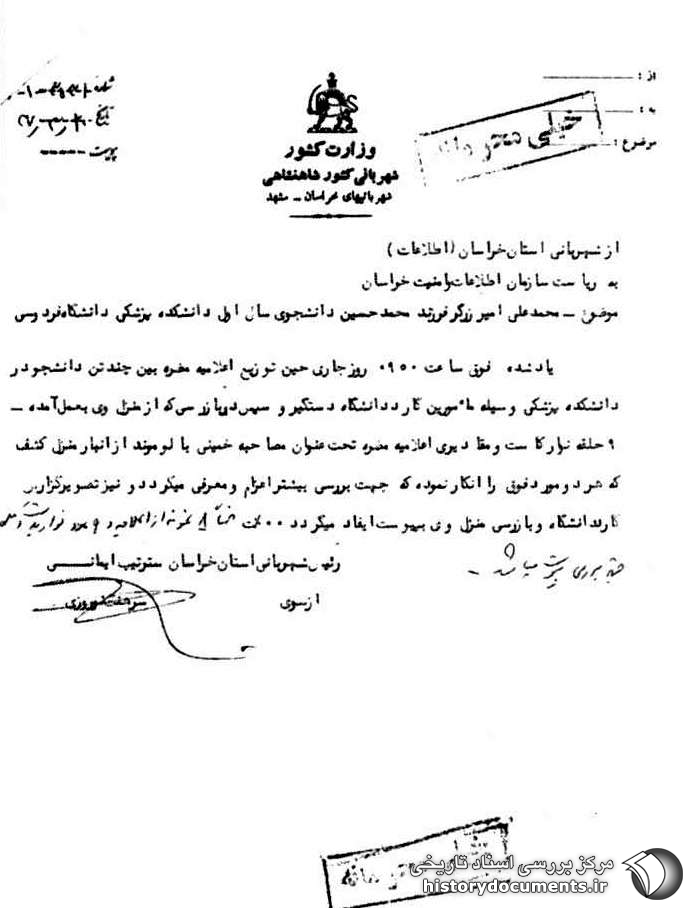 از :
به :
موضوع :
شماره
تاریخ
پیوست -----
خیلی محرمانه
وزارت کشور
شهربانی کشور شاهنشاهی
شهربانیهای خراسان - مشهد
از شهربانی استان خراسان (اطلاعات)
به ریاست سازمان اطلاعات و امنیت خراسان
موضوع - محمدعلی امیر زرگر فرزند محمدحسین دانشجوی سال اول دانشکده پزشکی دانشگاه فردوسی
یادشده فوق ساعت ۰۹۵۰ روز جاری حین توزیع اعلامیه مضره بین چند تن دانشجو در
دانشکده پزشکی وسیله مامورین گارد دانشگاه دستگیر و سپس در بازرسی که از منزل وی بعمل آمده -
۹ حلقه نوار کاست و مقادیری اعلامیه مضره تحت عنوان مصاحبه خمینی با لوموند از انبار منزل کشف
که هر دو مورد فوق را انکار نموده که جهت بررسی بیشتر اعزام و معرفی میگردد و نیز تصویر گزارش
گارد دانشگاه و بازرسی منزل وی بپیوست ایفاد میگردد ضمناً ۸ نمونه از اعلامیه و ۹ عدد نوار
جهت بررسی پیوست میباشد -
رئیس شهربانی استان خراسان سرتیپ ایمانی
از سوی
خیلی محرمانه
مرکز بررسی اسناد تاریخی
historydocuments.ir